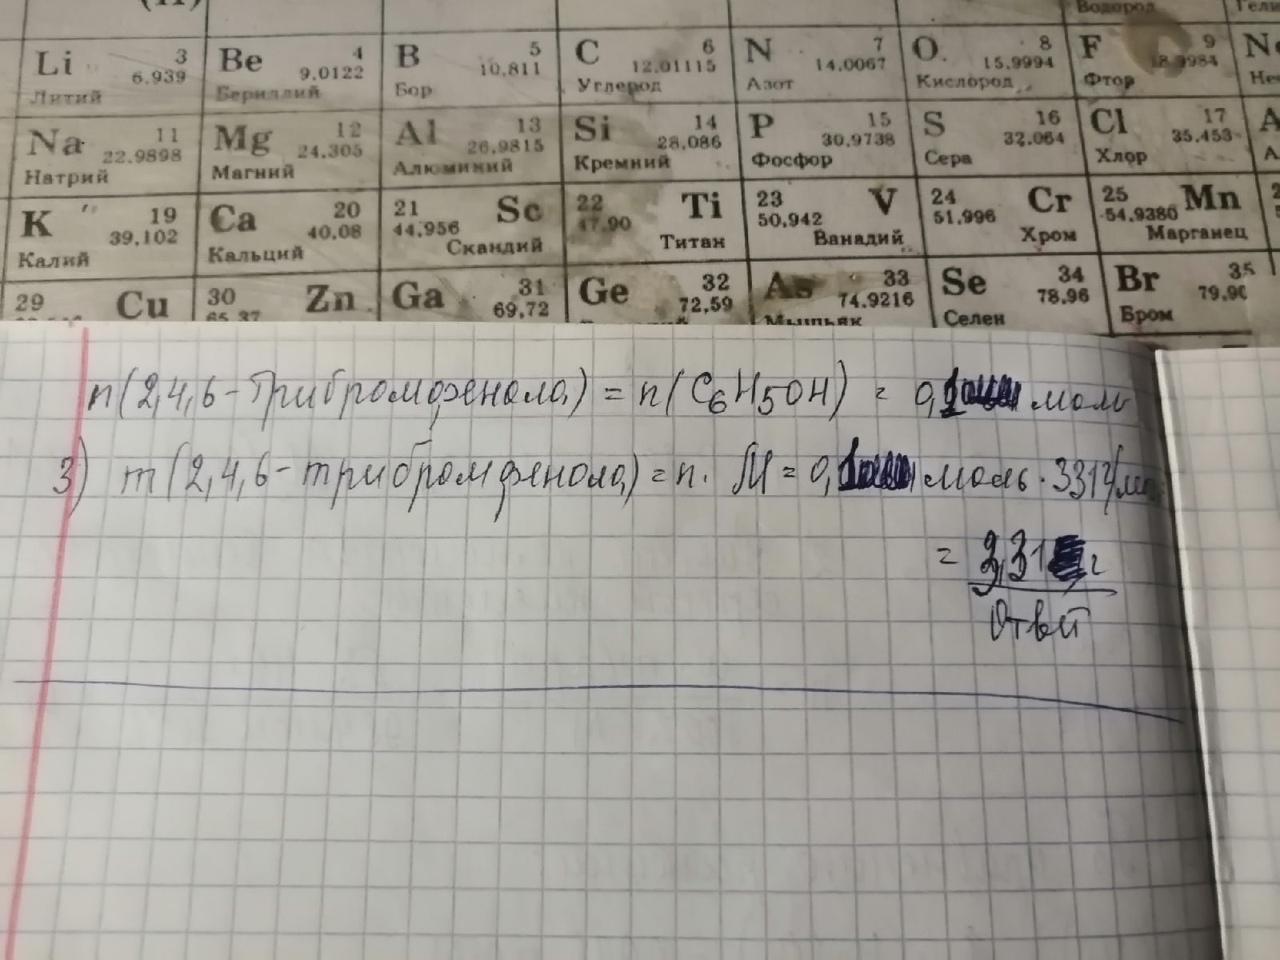 (II)
Водород Гели
Li 3 6.939 Be 4 9.0122 B 5 10,811 C 6 12.01115 N 7 14.0067 O 8 15.9994 F 9 18.9984
Литий Бериллий Бор Углерод Азот Кислород Фтор
Na 11 22.9898 Mg 12 24.305 Al 13 26.9815 Si 14 28.086 P 15 30.9738 S 16 32.064 Cl 17 35.453
Натрий Магний Алюминий Кремний Фосфор Сера Хлор
K 19 39,102 Ca 20 40.08 21 44,956 Sc 22 47.90 Ti 23 50,942 V 24 51,996 Cr 25 54,9380 Mn
Калий Кальций Скандий Титан Ванадий Хром Марганец
29 Cu 30 65.37 Zn Ga 31 69,72 Ge 32 72,59 As 33 74,9216 Se 34 78,96 Br 35
Мышьяк Селен Бром
n(2,4,6-трибромфенола) = n(C6H5OH) = 0,1 моль
3) m(2,4,6-трибромфенола) = n · M = 0,1 моль · 331 г/
= 3,31 г
Ответ